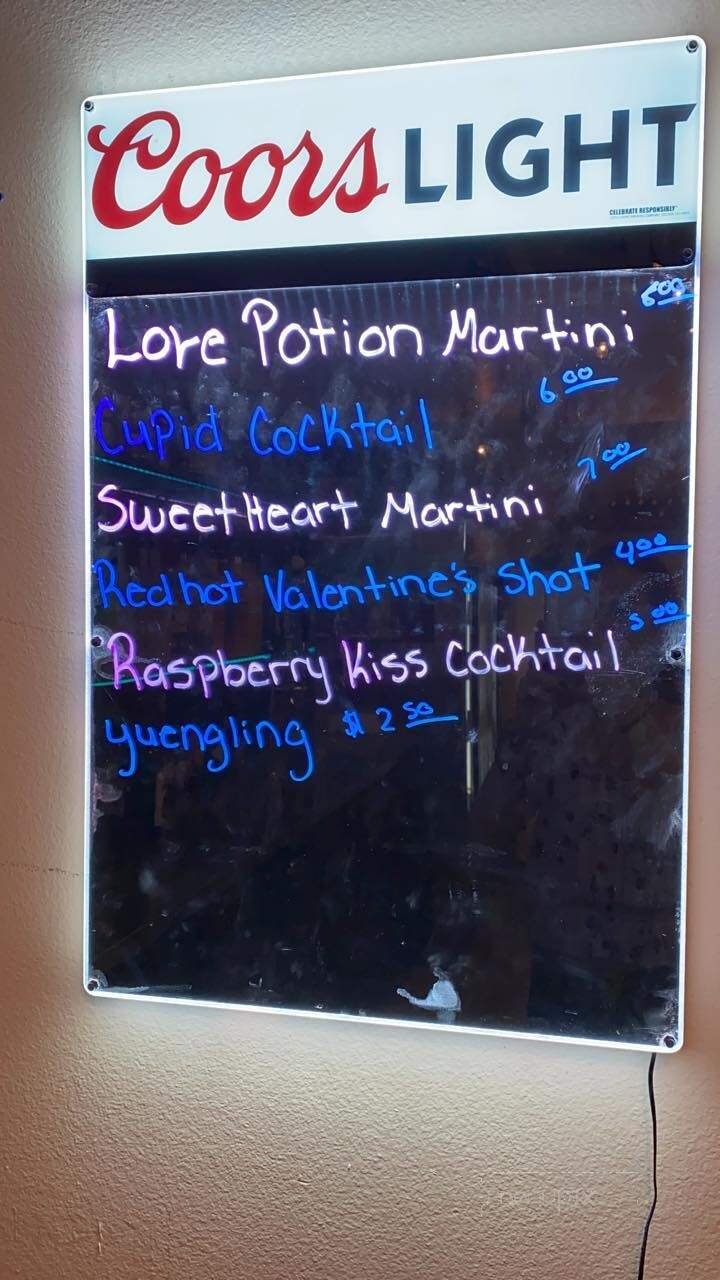 Coors LIGHT
CELEBRATE RESPONSIBLY
Love Potion Martini 8.00
Cupid Cocktail 6.00
SweetHeart Martini 7.00
Redhot Valentine's Shot 4.00
Raspberry Kiss Cocktail 5.00
yuengling $2.50